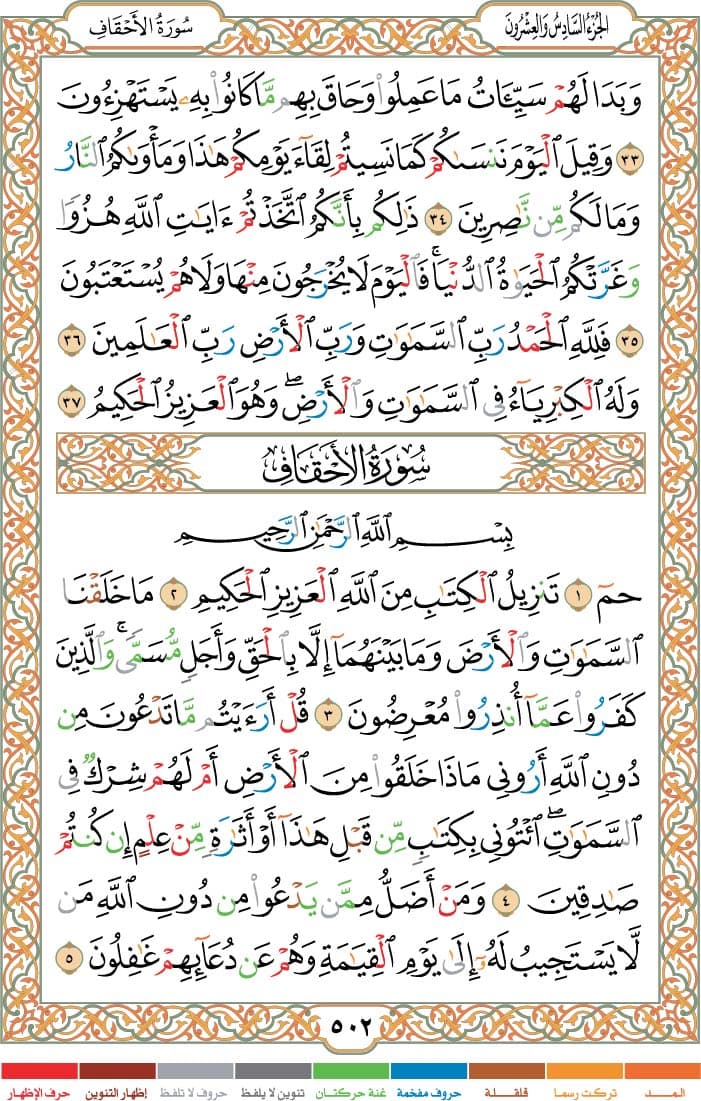 الجُزْءُ السَّادِسُ وَالعِشْرُونَ
سُورَةُ الأَحْقَافِ
وَبَدَا لَهُمْ سَيِّـَٔاتُ مَا عَمِلُوا۟ وَحَاقَ بِهِم مَّا كَانُوا۟ بِهِۦ يَسْتَهْزِءُونَ
٣٣ وَقِيلَ ٱلْيَوْمَ نَنسَىٰكُمْ كَمَا نَسِيتُمْ لِقَآءَ يَوْمِكُمْ هَٰذَا وَمَأْوَىٰكُمُ ٱلنَّارُ
وَمَا لَكُم مِّن نَّٰصِرِينَ ٣٤ ذَٰلِكُم بِأَنَّكُمُ ٱتَّخَذْتُمْ ءَايَٰتِ ٱللَّهِ هُزُوًا
وَغَرَّتْكُمُ ٱلْحَيَوٰةُ ٱلدُّنْيَا ۚ فَٱلْيَوْمَ لَا يُخْرَجُونَ مِنْهَا وَلَا هُمْ يُسْتَعْتَبُونَ
٣٥ فَلِلَّهِ ٱلْحَمْدُ رَبِّ ٱلسَّمَٰوَٰتِ وَرَبِّ ٱلْأَرْضِ رَبِّ ٱلْعَٰلَمِينَ ٣٦
وَلَهُ ٱلْكِبْرِيَآءُ فِى ٱلسَّمَٰوَٰتِ وَٱلْأَرْضِ ۖ وَهُوَ ٱلْعَزِيزُ ٱلْحَكِيمُ ٣٧
سُورَةُ الأَحْقَافِ
بِسْمِ ٱللَّهِ ٱلرَّحْمَٰنِ ٱلرَّحِيمِ
حمٓ ١ تَنزِيلُ ٱلْكِتَٰبِ مِنَ ٱللَّهِ ٱلْعَزِيزِ ٱلْحَكِيمِ ٢ مَا خَلَقْنَا
ٱلسَّمَٰوَٰتِ وَٱلْأَرْضَ وَمَا بَيْنَهُمَآ إِلَّا بِٱلْحَقِّ وَأَجَلٍ مُّسَمًّى ۚ وَٱلَّذِينَ
كَفَرُوا۟ عَمَّآ أُنذِرُوا۟ مُعْرِضُونَ ٣ قُلْ أَرَءَيْتُم مَّا تَدْعُونَ مِن
دُونِ ٱللَّهِ أَرُونِى مَاذَا خَلَقُوا۟ مِنَ ٱلْأَرْضِ أَمْ لَهُمْ شِرْكٌ فِى
ٱلسَّمَٰوَٰتِ ۖ ٱئْتُونِى بِكِتَٰبٍ مِّن قَبْلِ هَٰذَآ أَوْ أَثَٰرَةٍ مِّنْ عِلْمٍ إِن كُنتُمْ
صَٰدِقِينَ ٤ وَمَنْ أَضَلُّ مِمَّن يَدْعُوا۟ مِن دُونِ ٱللَّهِ مَن
لَّا يَسْتَجِيبُ لَهُۥٓ إِلَىٰ يَوْمِ ٱلْقِيَٰمَةِ وَهُمْ عَن دُعَآئِهِمْ غَٰفِلُونَ ٥
٥٠٢
المـــد تركت رسما قلقلة حروف مفخمة غنة حركتان تنوين لا يلفظ حروف لا تلفظ إظهار التنوين حرف الإظهار